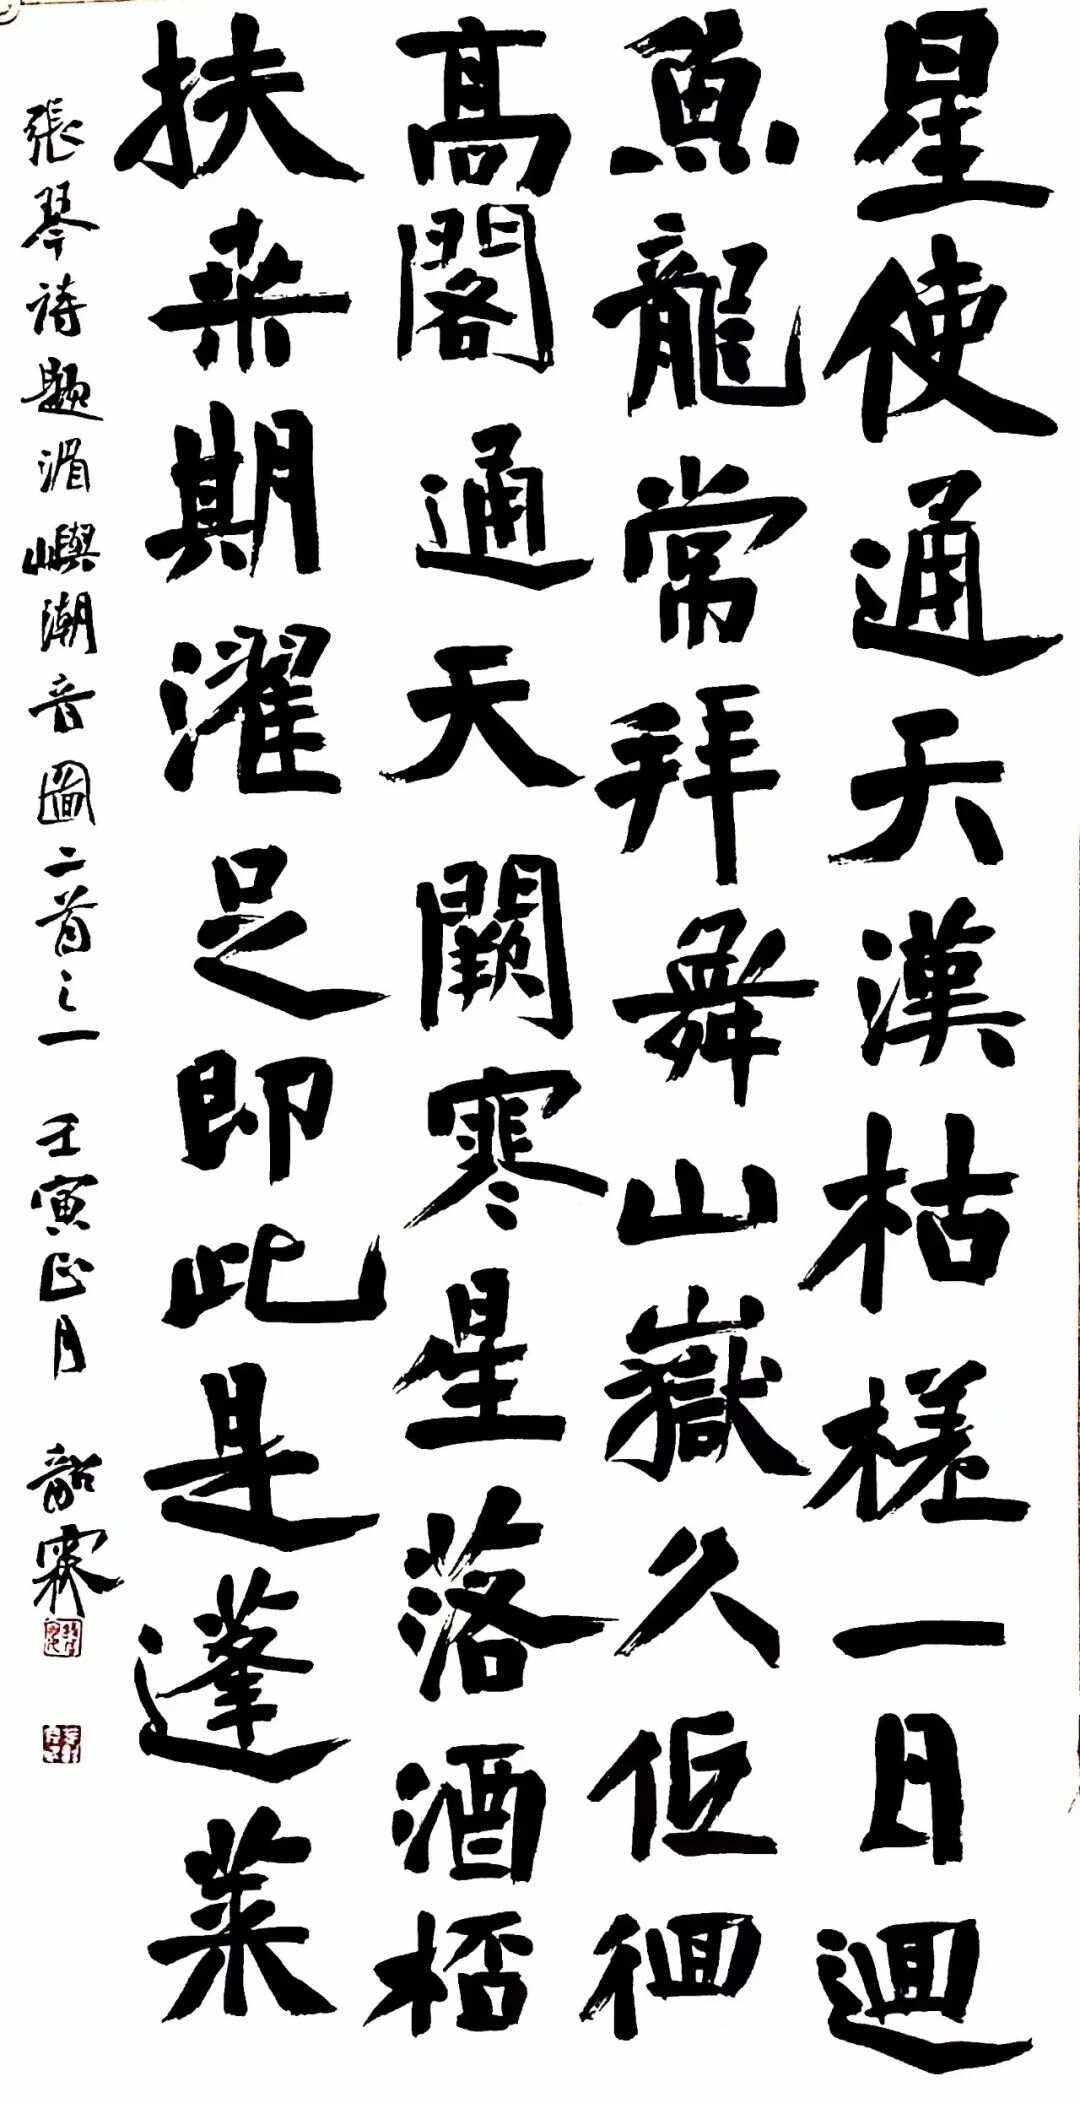 星使通天漢枯槎一日迴
魚龍常拜舞山嶽久低徊
高閣通天闕寒星落酒桮
扶桑期濯足即此是蓬萊
張琴詩題湄嶼潮音圖二首之一 壬寅正月 韶霖